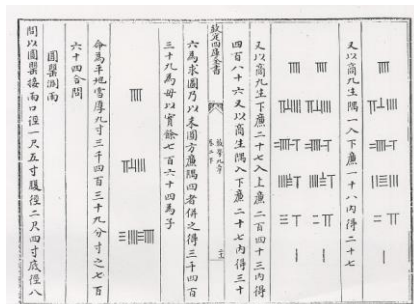 又以商九生隅一入下廉一十八内得二十七
又以商九生下廉二十七入上廉二百四十三内得
四百八十六又以商生隅入下廉二十七内得三十
欽定四庫全書
數學九章
卷二下
六為求圓乃以來圓方廉隅四者併之得三千四百
三十九為母以實餘七百六十四為子
命為平地雪厚九寸三千四百三十九分寸之七百
六十四合問
圓罌測雨
問以圓罌接雨口徑一尺五寸腹徑二尺四寸底徑八